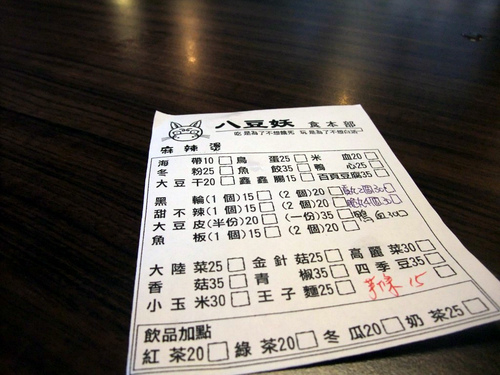 八豆妖 食本部
吃 是為了不想餓死 玩 是為了不想白活
麻 辣 燙
海 帶10 □ 鳥 蛋25 □ 米 血20 □
冬 粉25 □ 魚 餃35 □ 鴨 心25 □
大 豆 干20 □ 鑫 鑫 腸15 □ 百頁豆腐35 □
黑 輪(1 個)15 □ (2 個)20 □
甜 不 辣(1 個)15 □ (2 個)20 □
大 豆 皮(半份)20 □ (一份)35 □ 鴨血30 □
魚 板(1 個)15 □ (2 個)20 □
大 陸 菜25 □ 金 針 菇25 □ 高 麗 菜30 □
香 菇35 □ 青 椒35 □ 四 季 豆35 □
小 玉 米30 □ 王 子 麵25 □ 15
飲品加點
紅 茶20 □ 綠 茶20 □ 冬 瓜20 □ 奶 茶25 □